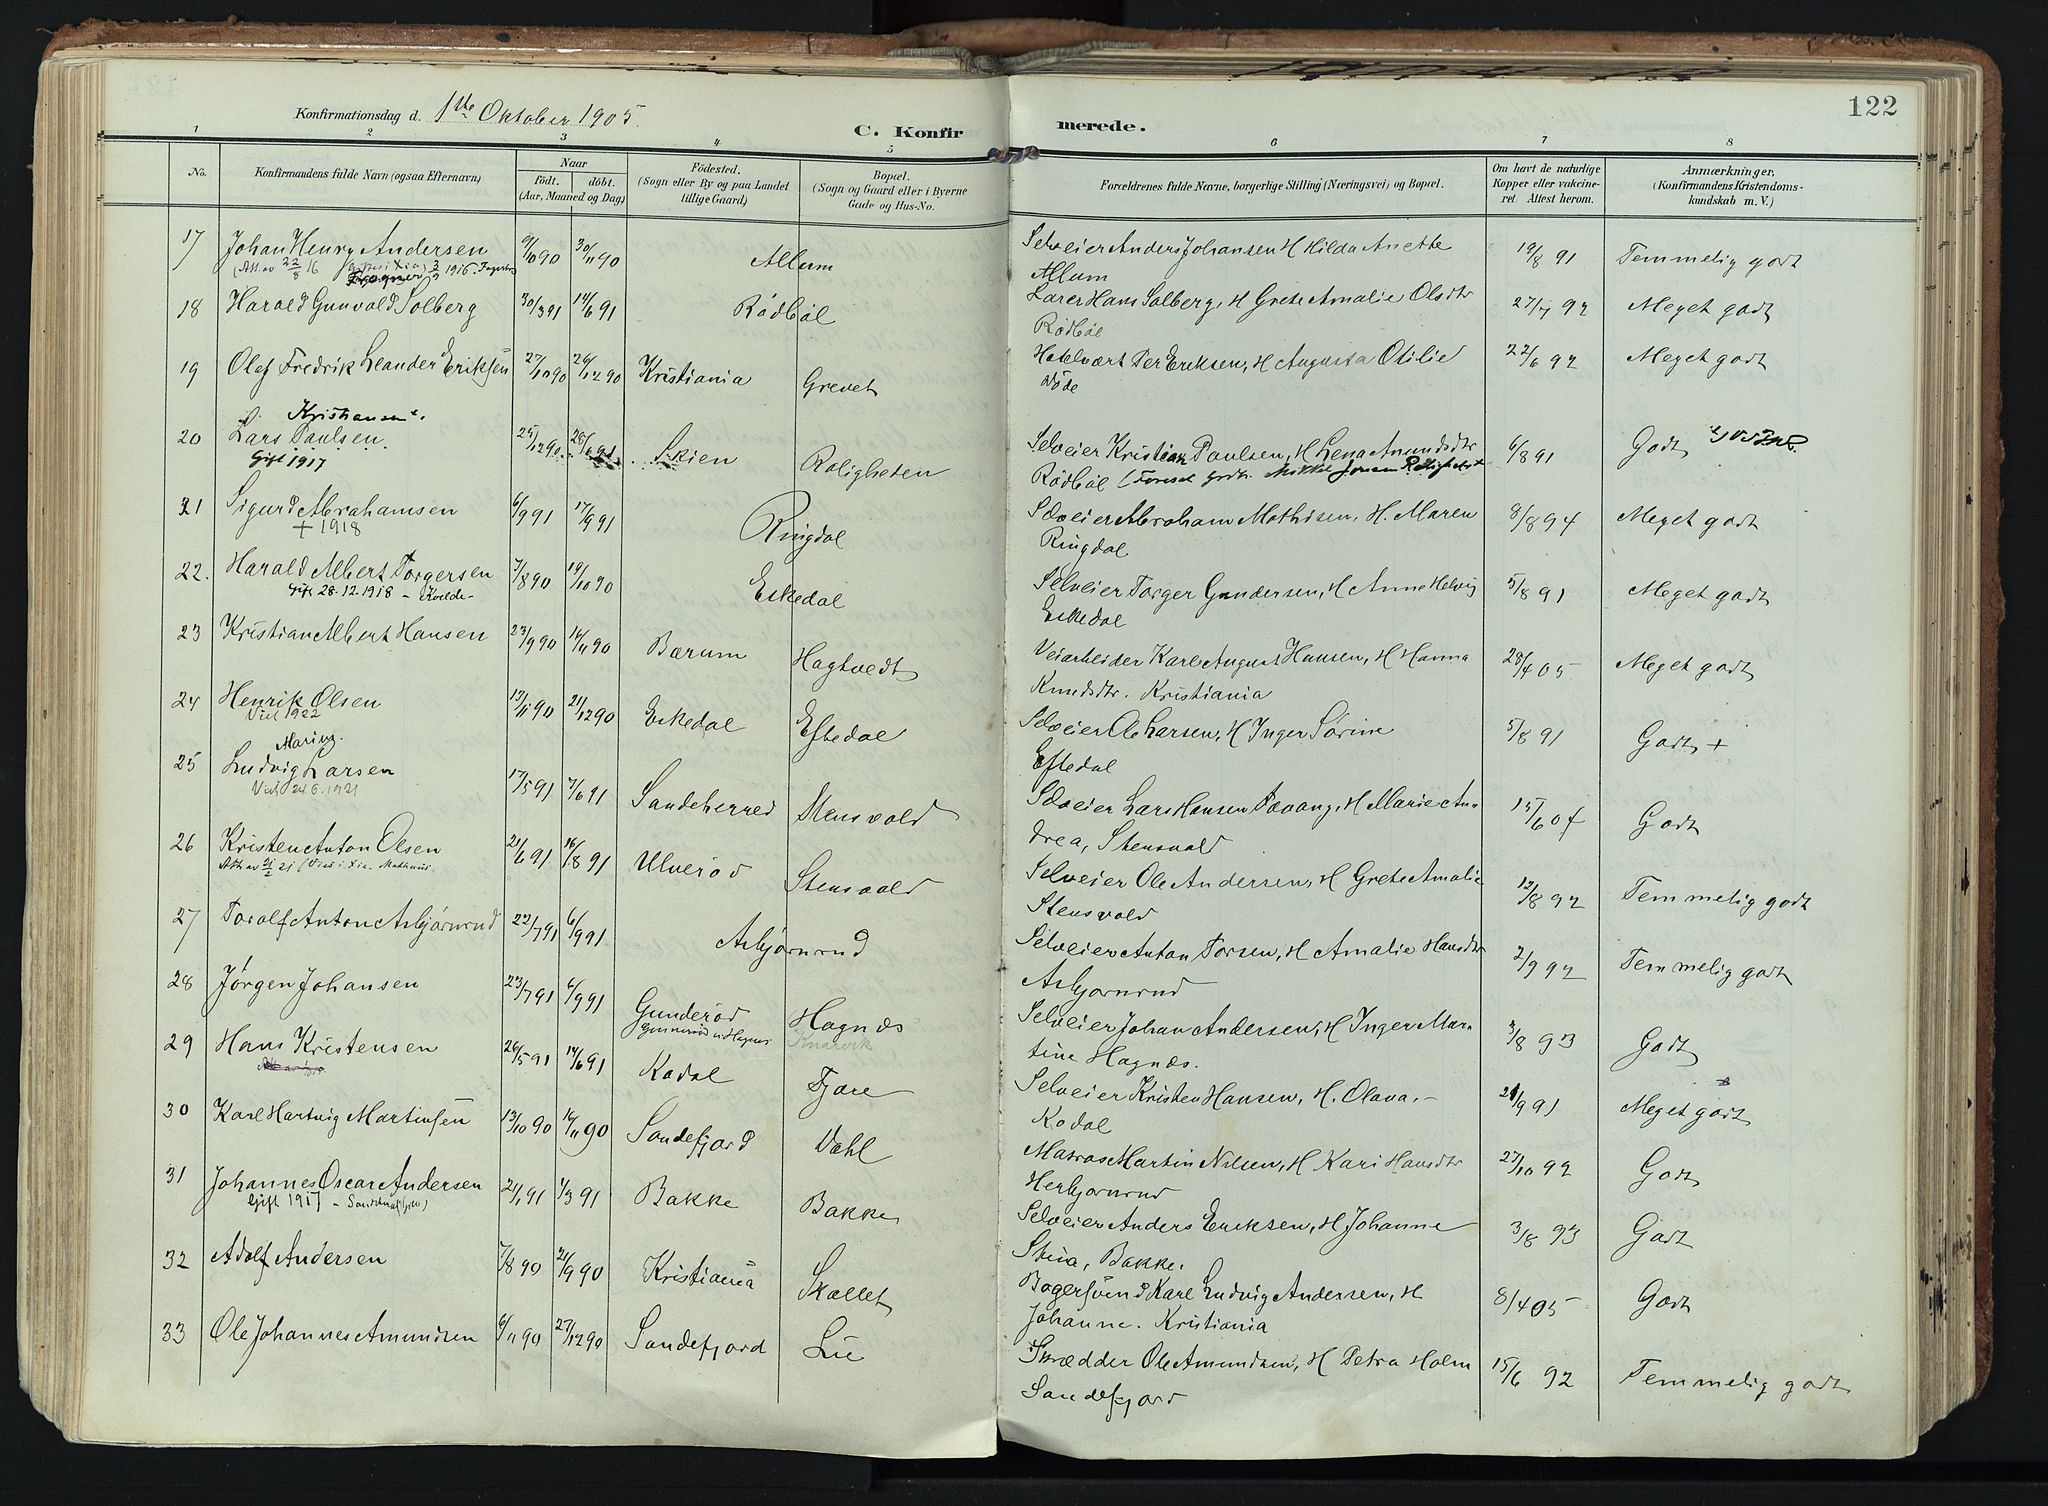 122
Konfirmationsdag d. 1ste Oktober 1905.
C. Konfirmerede.
1 2 3 4 5 6 7 8
No. Konfirmandens fulde Navn (ogsaa Efternavn) Naar födt. döbt. (Aar, Maaned og Dag) Födested. (Sogn eller By og paa Landet tillige Gaard) Bopæl. (Sogn og Gaard eller i Byerne Gade og Hus-No. Forældrenes fulde Navne, borgerlige Stilling (Næringsvei) og Bopæl. Om havt de naturlige Kopper eller vakcineret. Attest herom. Anmærkninger, (Konfirmandens Kristendomskundskab m. V.)
17 Johan Henry Andersen 9/10 90 30/11 90 Allum Selveier Anders Johansen H Hilda Anette 19/8 91 Temmelig godt
(Att. av 22/8 16 Allum
18 Harald Gunvald Solberg 30/3 91 14/6 91 Rödböl Lærer Hans Solberg, H Grete Amalie Olsdtr 27/7 92 Meget godt
Rödböl
19 Olaf Fredrik Leander Eriksen 27/10 90 26/12 90 Kristiania Grevet Hotelvært Per Eriksen, H Augusta Otilie 22/6 92 Meget godt
Döde
Kristiansen
20 Lars Paulsen. 25/12 90 Skien Roligheten Selveier Kristian Paulsen, H Lena Amundsdtr 6/8 91 Godt
Gift 1917 Rödböl
21 Sigurd Abrahamsen 6/9 91 17/9 91 Ringdal Selveier Abraham Mathisen, H. Maren 8/8 94 Meget godt
+ 1918 Ringdal
22. Harald Albert Torgersen 7/8 90 19/10 90 Eskedal Selveier Torger Gundersen, H Anne Helvig 5/8 91 Meget godt
Gift 28.12.1918 - Kvelde - Eskedal
23 Kristian Albert Hansen 23/9 90 16/11 90 Bærum Hagtvedt Veiarbeider Karl August Hansen, H Hanna 28/4 05 Meget godt
Knudsdtr. Kristiania
24 Henrik Olsen 13/11 90 21/12 90 Eskedal Eftedal Selveier Ole Larsen, H Inger Sørine 5/8 91 Godt +
Viet 1922 Eftedal
Marius.
25 Ludvig Larsen 17/5 91 7/6 91 Sandeherred Stensvold Selveier Lars Hansen Pavang, H Marie An- 15/6 04 Godt
Viet 24 6.1921 drea, Stensvold
26 Kristen Anton Olsen 21/6 91 16/8 91 Ulveröd Stensvold Selveier Ole Andersen, H Grete Amalie 12/8 92 Temmelig godt
Stensvold
27 Toralf Anton Asbjörnrud 22/7 91 6/9 91 Asbjörnrud Selveier Anton Torsen, H Amalie Hansdtr 2/9 92 Temmelig godt
Asbjørnrud
28 Jörgen Johansen 23/7 91 6/9 91 Gunderöd Hagnæs Selveier Johan Andersen, H Inger Mar- 3/8 93 Godt
Knarvik tine Hagnæs.
29 Hans Kristensen 26/5 91 14/6 91 Kodal Tjare Selveier Kristen Hansen, H. Olava. - 21/9 91 Meget godt
Kodal
30 Karl Hartvig Martinsen 13/10 90 16/11 90 Sandefjord Dahl Matros Martin Nilsen, H Kari Hansdtr 27/10 92 Godt
Herbjørnrud
31 Johannes Oscar Andersen 21/1 91 1/3 91 Bakke Bakke Selveier Anders Eriksen, H Johanne 3/8 93 Godt
Gift 1917 Stina, Bakke.
32 Adolf Andersen 7/8 90 21/9 90 Kristiania Skallet Bagersvend Karl Ludvig Andersen, H 8/4 05 Godt
Johanne. Kristiania
33 Ole Johannes Amundsen 6/11 90 27/12 90 Sandefjord Lie Skrædder Ole Amundsen, H Petra Holm 15/6 92 Temmelig godt
Sandefjord